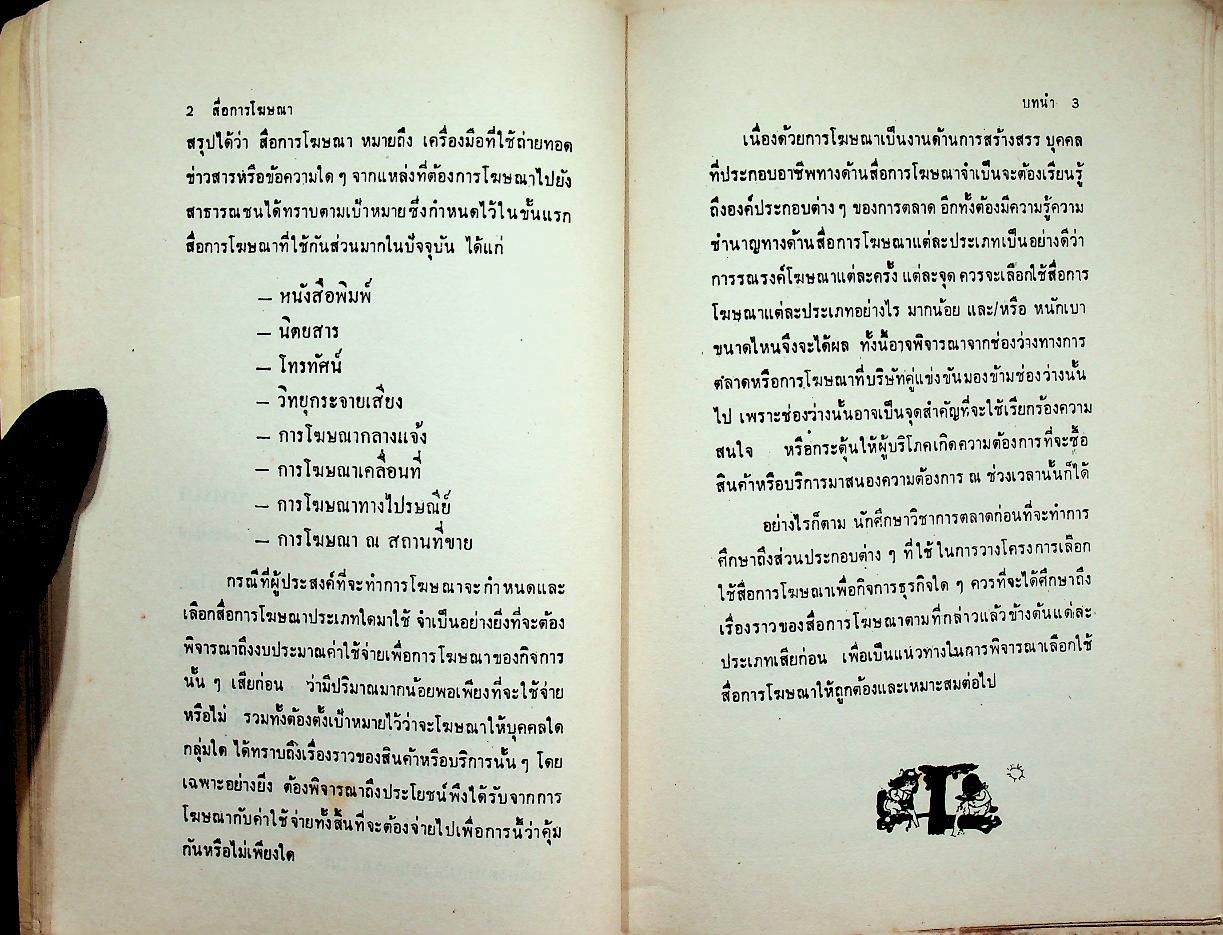 2 สื่อการโฆษณา
สรุปได้ว่า สื่อการโฆษณา หมายถึง เครื่องมือที่ใช้ถ่ายทอด
ข่าวสารหรือข้อความใด ๆ จากแหล่งที่ต้องการโฆษณาไปยัง
สาธารณชนได้ทราบตามเป้าหมายซึ่งกำหนดไว้ในขั้นแรก
สื่อการโฆษณาที่ใช้กันส่วนมากในปัจจุบัน ได้แก่
– หนังสือพิมพ์
– นิตยสาร
– โทรทัศน์
– วิทยุกระจายเสียง
– การโฆษณากลางแจ้ง
– การโฆษณาเคลื่อนที่
– การโฆษณาทางไปรษณีย์
– การโฆษณา ณ สถานที่ขาย
กรณีที่ผู้ประสงค์ที่จะทำการโฆษณาจะกำหนดและ
เลือกสื่อการโฆษณาประเภทใดมาใช้ จำเป็นอย่างยิ่งที่จะต้อง
พิจารณาถึงงบประมาณค่าใช้จ่ายเพื่อการโฆษณาของกิจการ
นั้น ๆ เสียก่อน ว่ามีปริมาณมากน้อยพอเพียงที่จะใช้จ่าย
หรือไม่ รวมทั้งต้องตั้งเป้าหมายไว้ว่าจะโฆษณาให้บุคคลใด
กลุ่มใด ได้ทราบถึงเรื่องราวของสินค้าหรือบริการนั้น ๆ โดย
เฉพาะอย่างยิ่ง ต้องพิจารณาถึงประโยชน์พึงได้รับจากการ
โฆษณากับค่าใช้จ่ายทั้งสิ้นที่จะต้องจ่ายไปเพื่อการนี้ว่าคุ้ม
กันหรือไม่เพียงใด
บทนำ 3
เนื่องด้วยการโฆษณาเป็นงานด้านการสร้างสรร บุคคล
ที่ประกอบอาชีพทางด้านสื่อการโฆษณาจำเป็นจะต้องเรียนรู้
ถึงองค์ประกอบต่าง ๆ ของการตลาด อีกทั้งต้องมีความรู้ความ
ชำนาญทางด้านสื่อการโฆษณาแต่ละประเภทเป็นอย่างดีว่า
การรณรงค์โฆษณาแต่ละครั้ง แต่ละจุด ควรจะเลือกใช้สื่อการ
โฆษณาแต่ละประเภทอย่างไร มากน้อย และ/หรือ หนักเบา
ขนาดไหนจึงจะได้ผล ทั้งนี้อาจพิจารณาจากช่องว่างทางการ
ตลาดหรือการโฆษณาที่บริษัทคู่แข่งขันมองข้ามช่องว่างนั้น
ไป เพราะช่องว่างนั้นอาจเป็นจุดสำคัญที่จะใช้เรียกร้องความ
สนใจ หรือกระตุ้นให้ผู้บริโภคเกิดความต้องการที่จะซื้อ
สินค้าหรือบริการมาสนองความต้องการ ณ ช่วงเวลานั้นก็ได้
อย่างไรก็ตาม นักศึกษาวิชาการตลาดก่อนที่จะทำการ
ศึกษาถึงส่วนประกอบต่าง ๆ ที่ใช้ในการวางโครงการเลือก
ใช้สื่อการโฆษณาเพื่อกิจการธุรกิจใด ๆ ควรที่จะได้ศึกษาถึง
เรื่องราวของสื่อการโฆษณาตามที่กล่าวแล้วข้างต้นแต่ละ
ประเภทเสียก่อน เพื่อเป็นแนวทางในการพิจารณาเลือกใช้
สื่อการโฆษณาให้ถูกต้องและเหมาะสมต่อไป